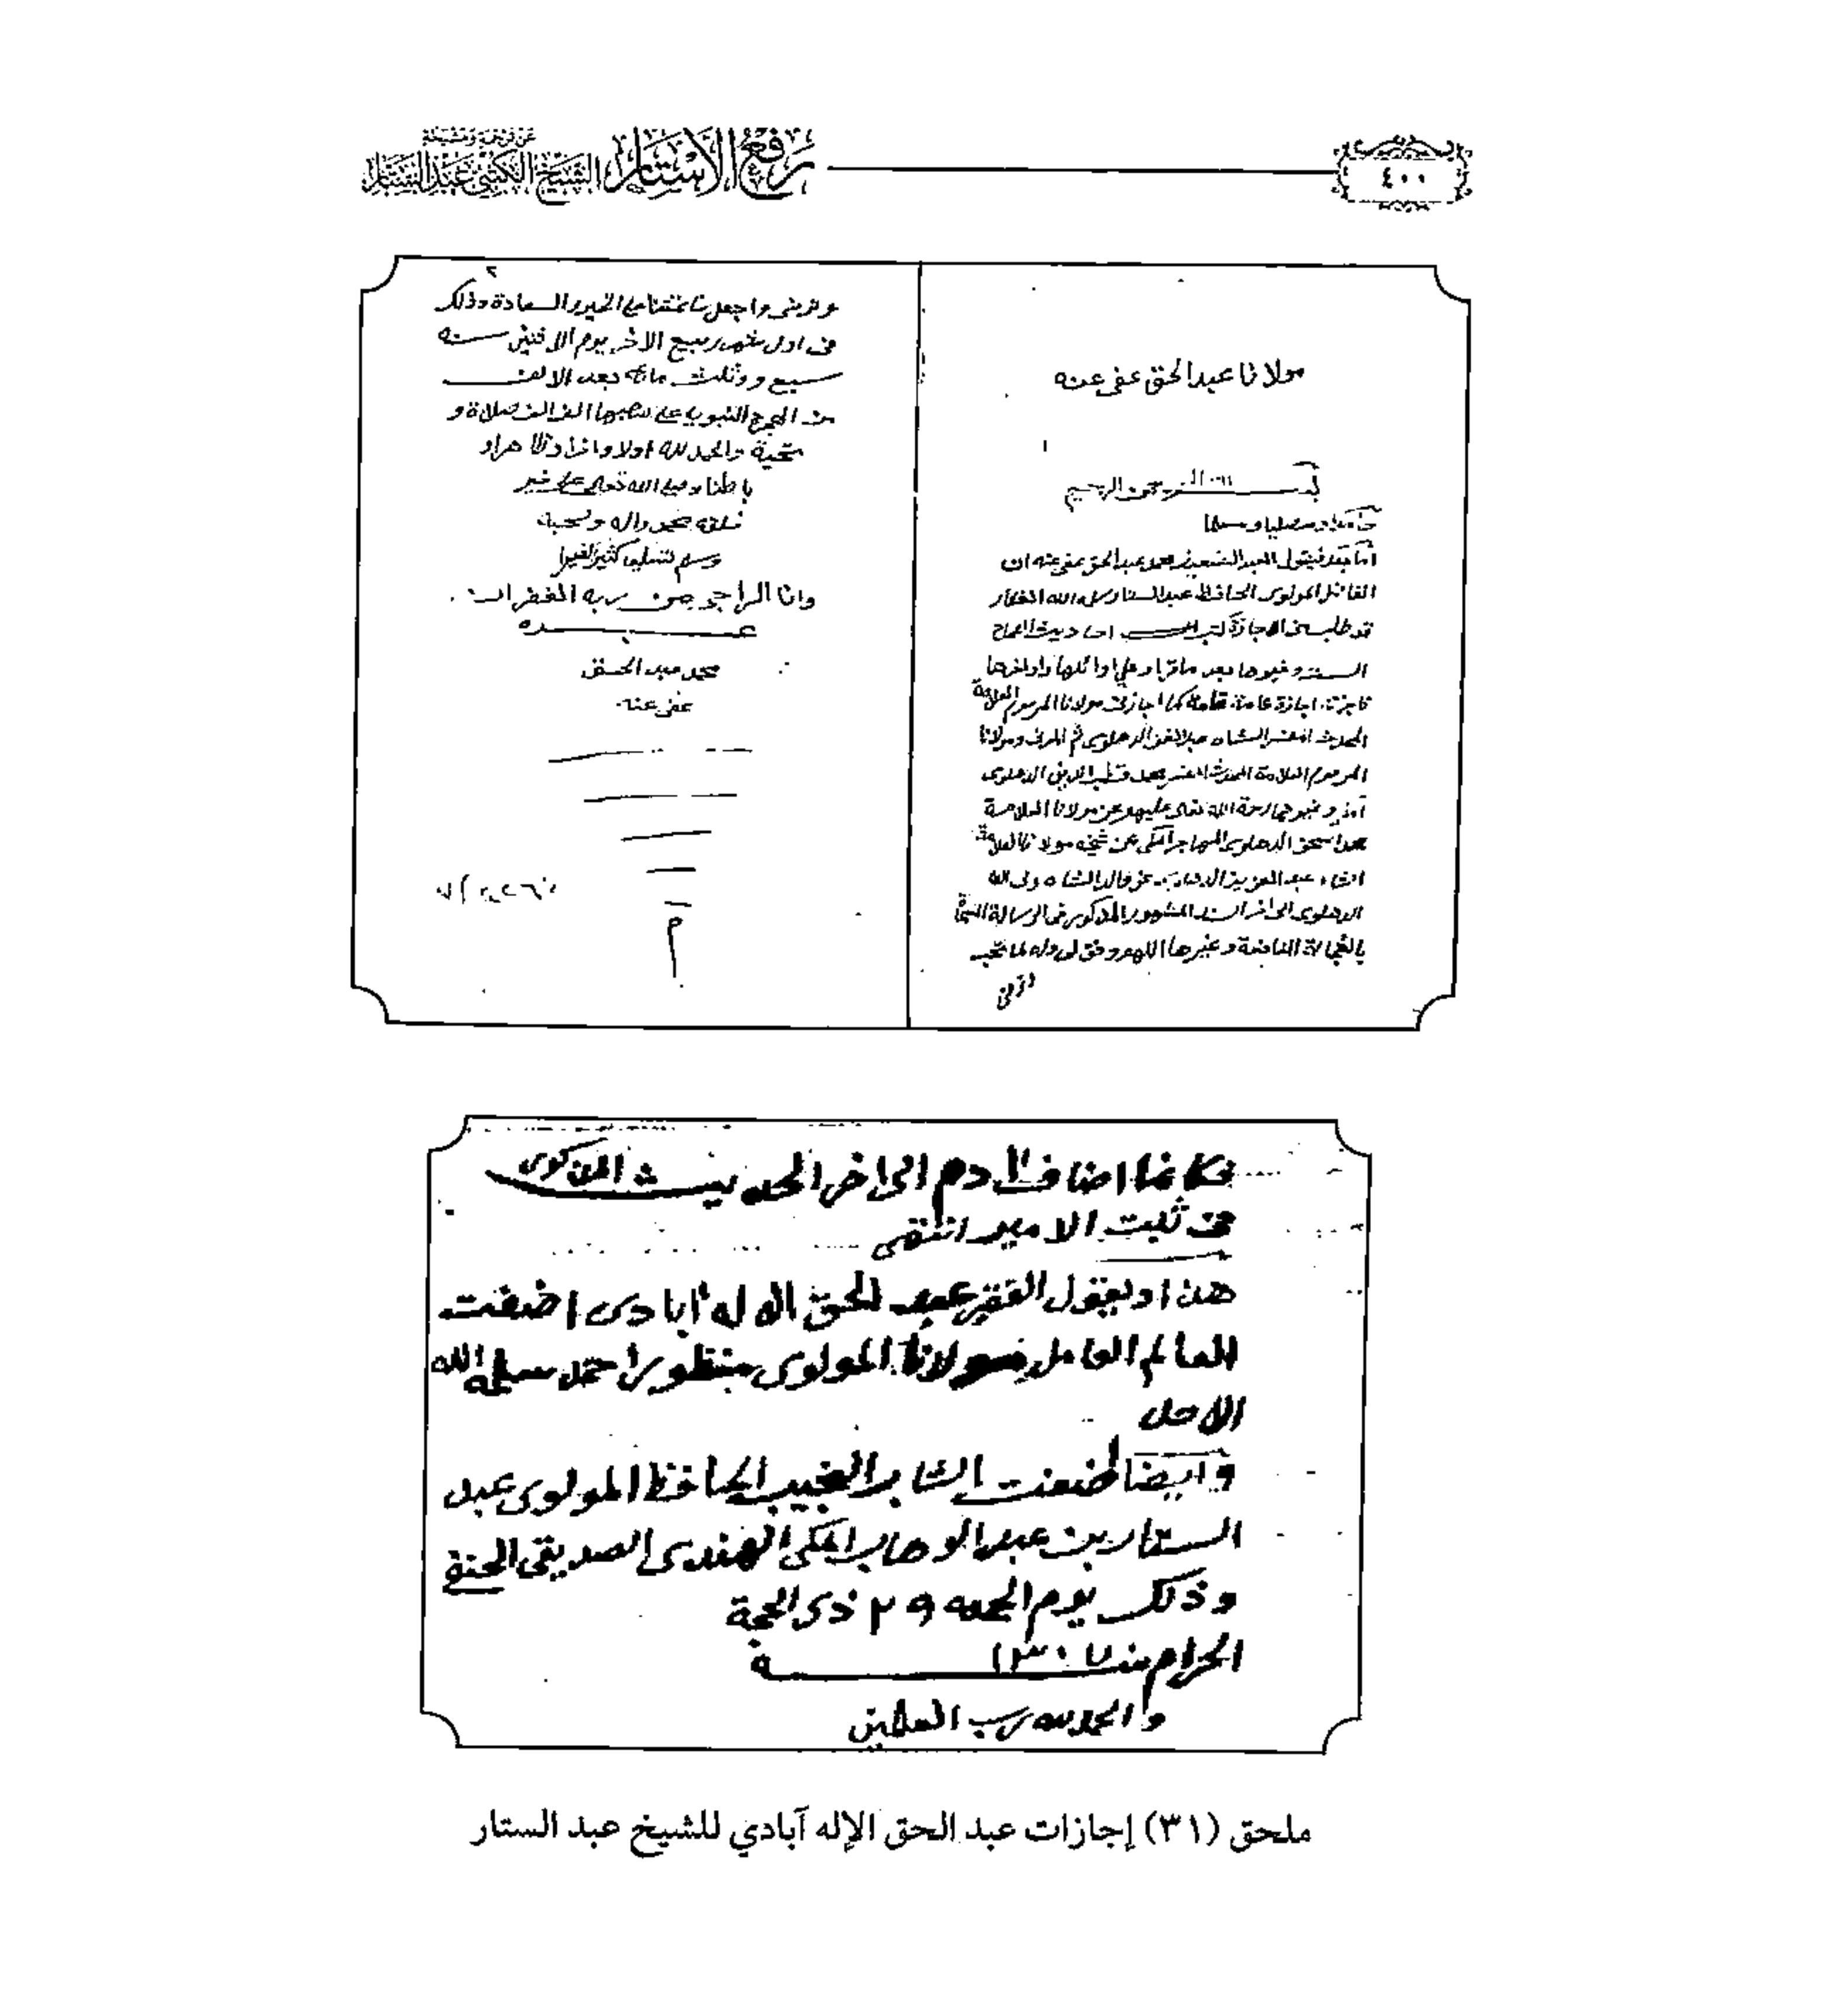 ٤٠٠
رفع الأستار
الشيخ الكتبي عبد الستار
مولانا عبد الحق عفى عنه
بسم الله الرحمن الرحيم
حامدا ومصليا ومسلما
أما بعد فيقول العبد الضعيف محمد عبد الحق عفى عنه ان
الفاضل المولوى الحافظ عبد الستار سلمه الله الغفار
قد طلب منى الاجازة لكتب احاديث الصحاح
الستة وغيرها بعد ما قرأ على اوائلها واواخرها
فاجزته اجازة عامة تامة كما اجازنى مولانا المرحوم العلامة
المحدث الشاه عبد الغنى الدهلوى ثم المدنى ومولانا
المرحوم العلامة المحدث محمد قطب الدين الدهلوى
وغيرهما رحمة الله تعالى عليهم عن مولانا العلامة
محمد اسحق الدهلوى المهاجر المكى عن شيخه مولانا العلامة
الشاه عبد العزيز الدهلوى عن والده الشاه ولى الله
الدهلوى الى اخر السند المشهور المذكور فى الرسالة
بالعجالة النافعة وغيرها اللهم وفق لى وله لما تحب
وترضى
وترضى واجعل خاتمتنا على الخير والسعادة وذلك
فى اول شهر ربيع الاخر يوم الاثنين سنة
سبع وثلث مائة بعد الالف
من الهجرة النبوية على صاحبها الف الف صلاة و
تحية والحمد لله اولا واخرا وظاهرا و
باطنا وصلى الله تعالى على خير
خلقه محمد واله وصحبه
وسلم تسليما كثيرا كثيرا
وانا الراجى من ربه الغفران
عبده
محمد عبد الحق
عفى عنه
م
فكانما اضاف ادم الى اخر الحديث المذكور
فى ثبت الامير انتهى
هذا ويقول الفقير عبد الحق الاله ابادى اضفت
العالم العامل مولانا المولوى منظور احمد سلمه الله
الاحد
وايضا اضفت الشاب النجيب الحافظ المولوى عبد
الستار بن عبد الوهاب المكى الهندى الصديقى الحنفى
وذلك يوم الجمعه ٢٩ ذى الحجة
الحرام سنة ١٣٠٧
والحمد لله رب العلمين
ملحق (٣١) إجازات عبد الحق الإله آبادي للشيخ عبد الستار